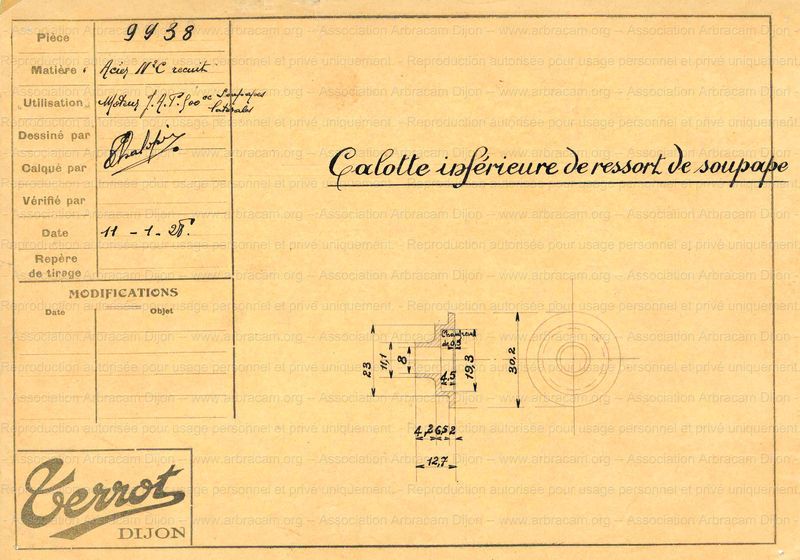 Pièce 9938
Matière Acier N°C recuit
Utilisation Moteur J.A.P. 500 cc Soupapes latérales
Dessiné par
Calqué par
Vérifié par
Date 11 - 1 - 28
Repère de tirage
MODIFICATIONS
Date Objet
Calotte inférieure de ressort de soupape
Chanfrein de 0,5
23
11,1
8
4,5
19,3
30,2
4,2 6,5 2
12,7
Terrot
DIJON
Association Arbracam Dijon -- www.arbracam.org -- Reproduction autorisée pour usage personnel et privé uniquement.